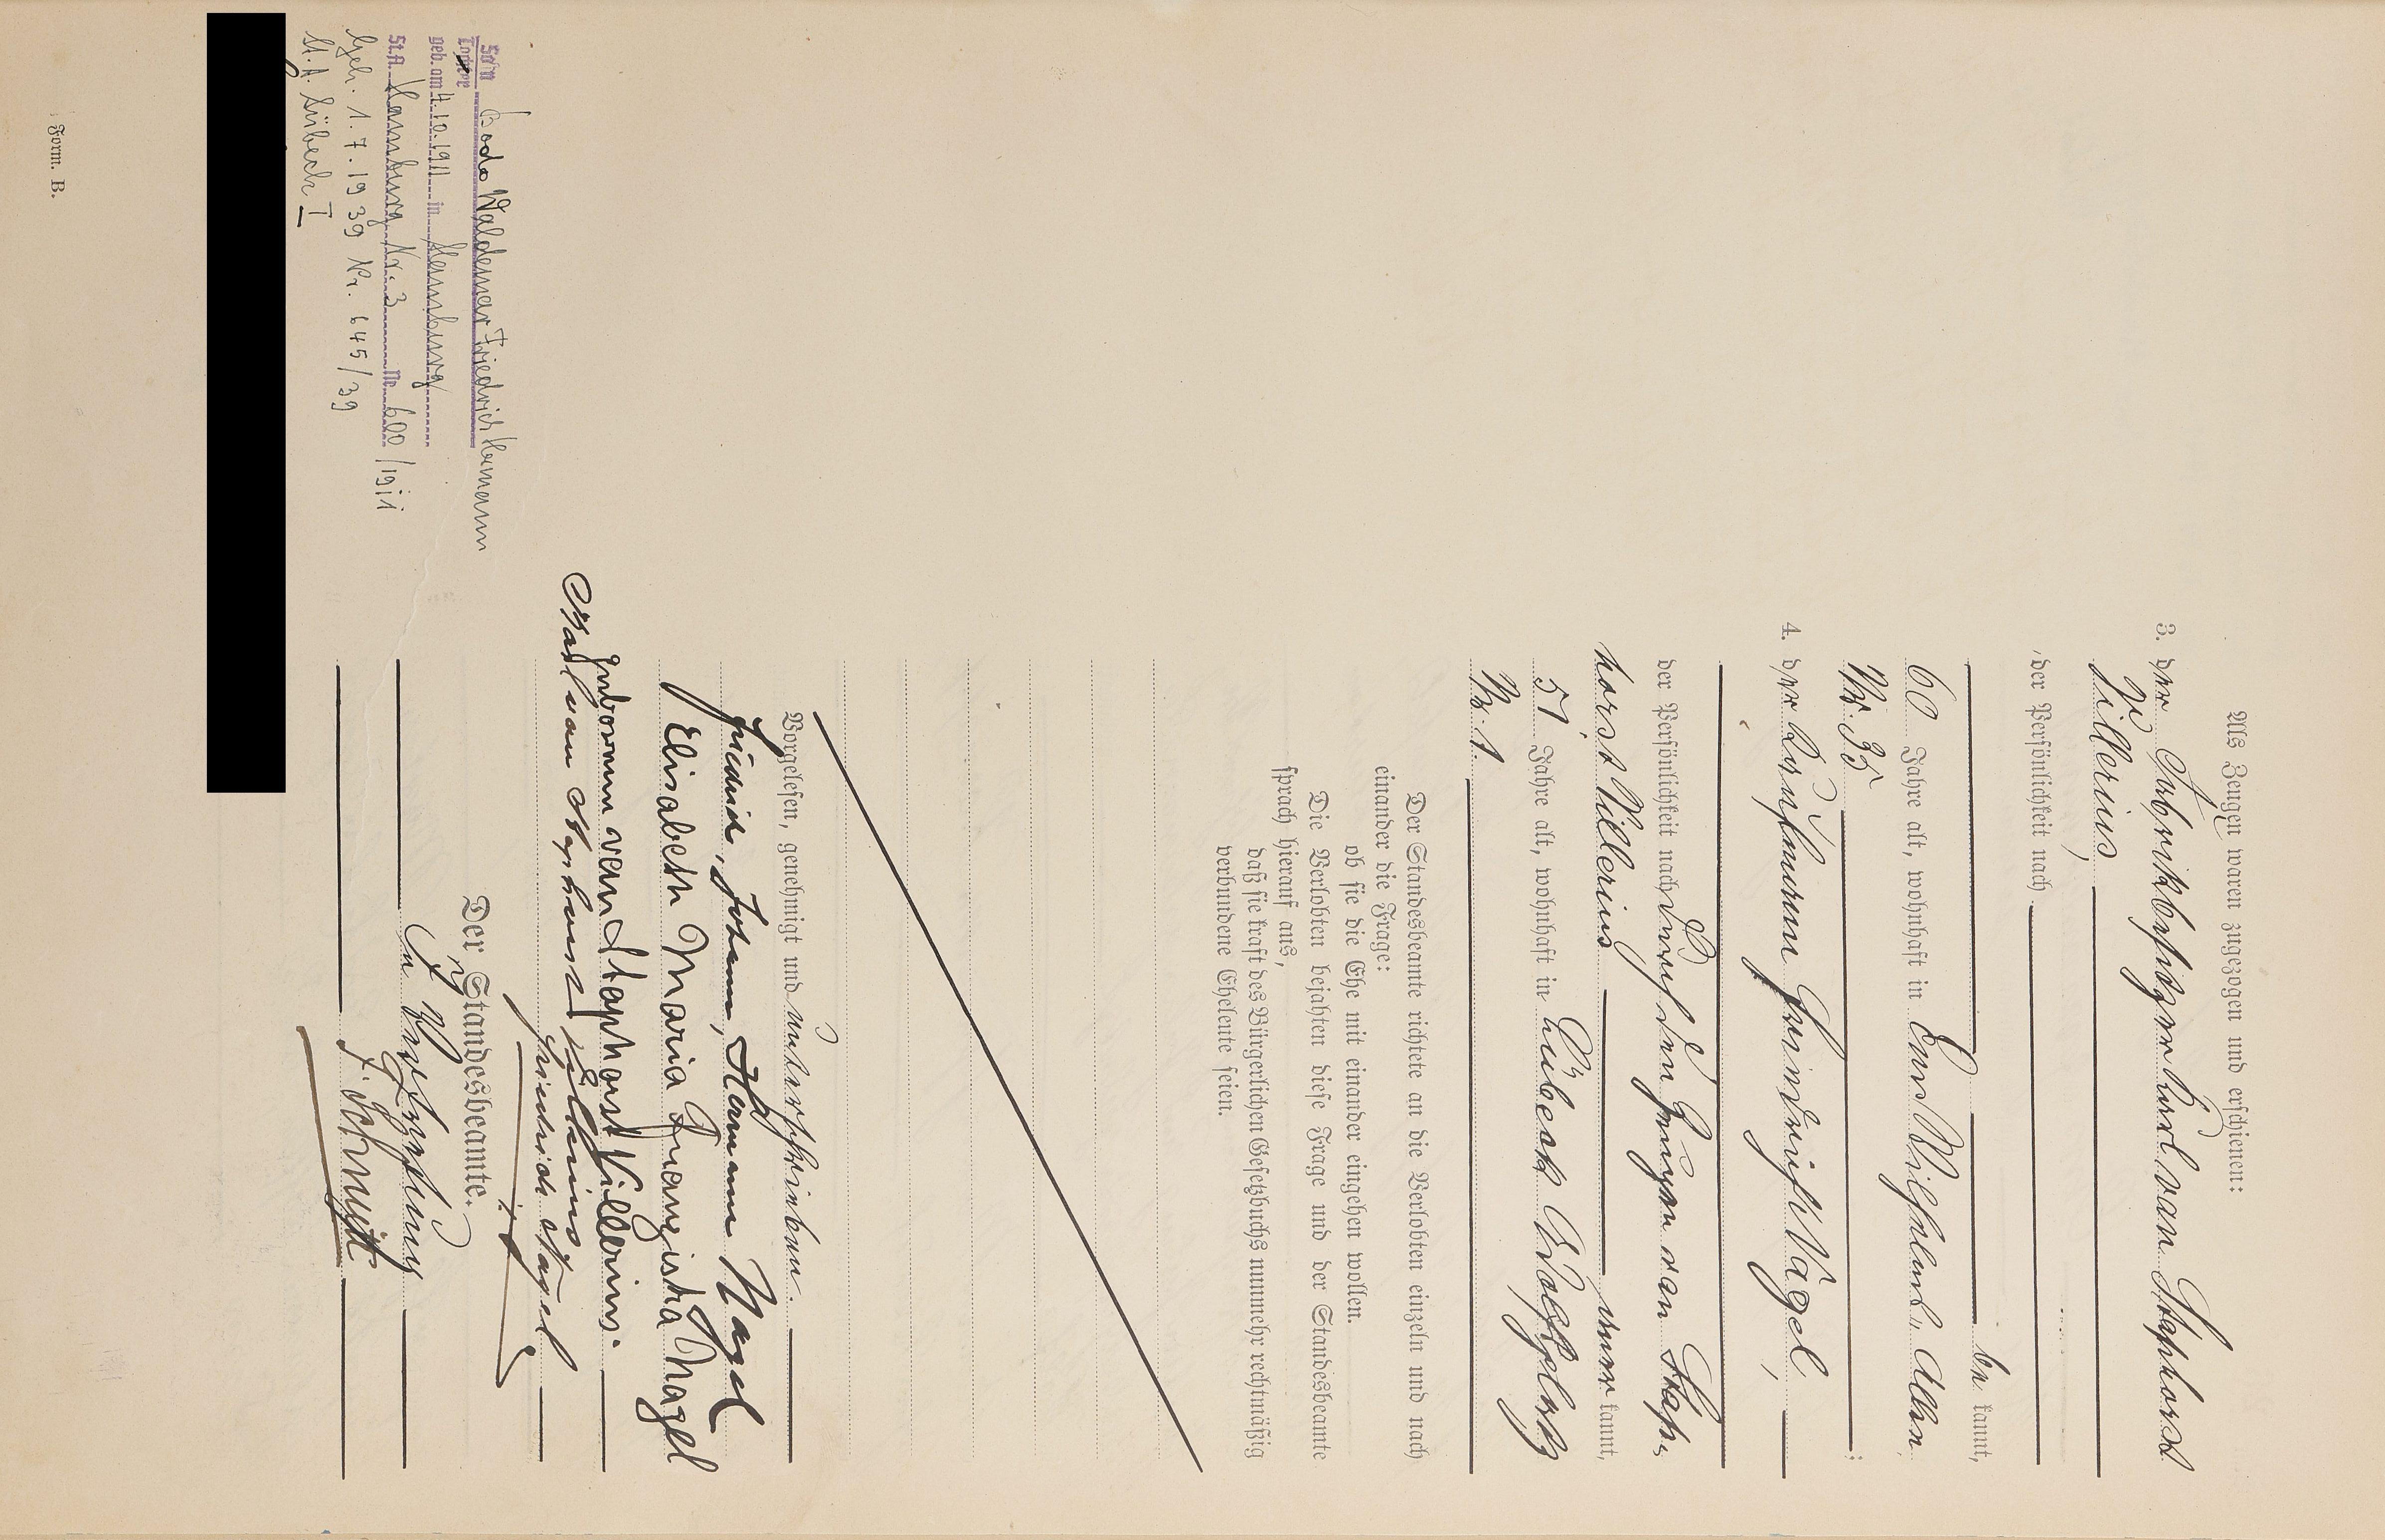 Als Zeugen waren zugezogen und erschienen:
3. der Fabrikbesitzer Karl van Staphorst
Villerius,
der Persönlichkeit nach
be kannt,
60 Jahre alt, wohnhaft in Wilhelms Allee
Nr. 35;
4. der Kaufmann Heinrich Nagel,
der Persönlichkeit nach durch den Zeugen van Stap-
horst Villerius anerkannt,
51 Jahre alt, wohnhaft in Lübeck
Nr. 1.
Der Standesbeamte richtete an die Verlobten einzeln und nach
einander die Frage:
ob sie die Ehe mit einander eingehen wollen.
Die Verlobten bejahten diese Frage und der Standesbeamte
sprach hierauf aus,
daß sie kraft des Bürgerlichen Gesetzbuchs nunmehr rechtmäßig
verbundene Eheleute seien.
Vorgelesen, genehmigt und unterschrieben.
Friedrich, Johann, Hermann Nagel
Elisabeth Maria Franziska Nagel
geborene van Staphorst Villerius.
Karl van Staphorst Villerius
Heinrich Nagel
Der Standesbeamte.
In Vertretung
F. Schmidt
Sohn Bodo Waldemar Friedrich Hermann
Tochter
geb. am 4.10.1911 in Hamburg
St.A. Hamburg Nr. 3 Nr. 600/1911
Gesch. 1.7.1939 Nr. 645/39
St.A. Lübeck I
Form. B.